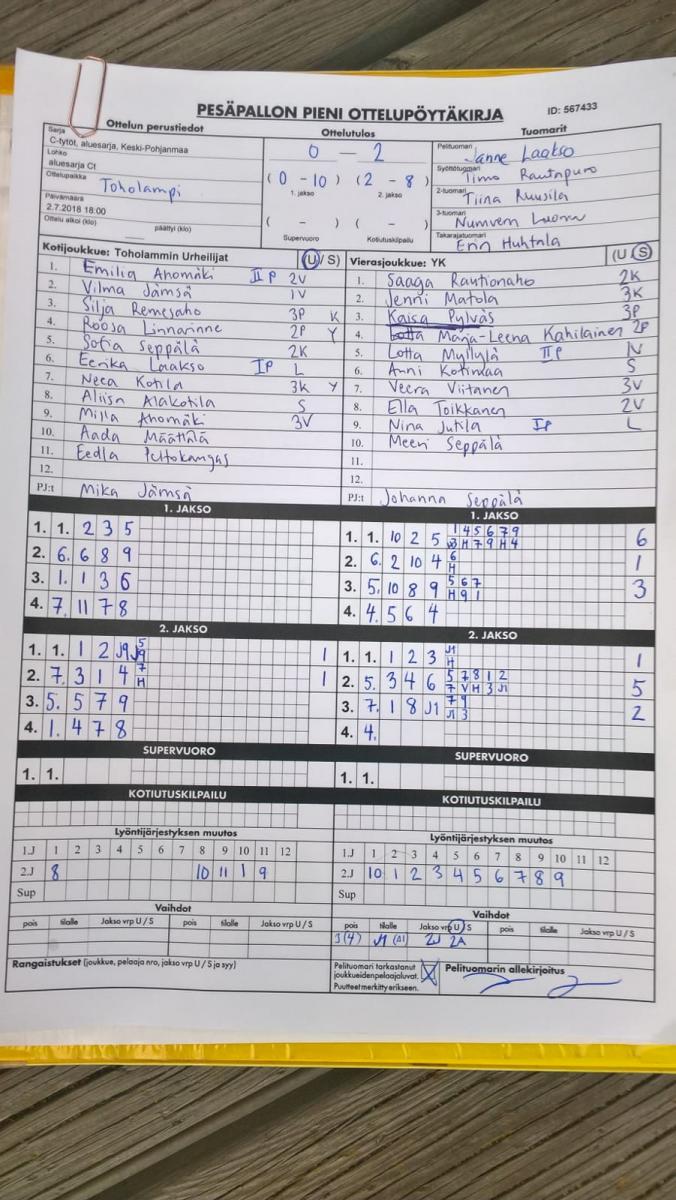 PESÄPALLON PIENI OTTELUPÖYTÄKIRJA ID: 567433
Ottelun perustiedot Ottelutulos Tuomarit
Sarja
C-tytöt, aluesarja, Keski-Pohjanmaa
Lohko
aluesarja Ct
Ottelupaikka Toholampi
Päivämäärä
2.7.2018 18:00
Ottelu alkoi (klo) päättyi (klo)
0 – 2
(0 – 10) (2 – 8)
1. jakso 2. jakso
( – ) ( – )
Supervuoro Kotiutuskilpailu
Pelituomari Janne Laakso
Syöttötuomari Timo Rautapuro
2-tuomari Tiina Ruusila
3-tuomari
Takarajatuomari Erin Huhtala
Kotijoukkue: Toholammin Urheilijat (U / S)
1. Emilia Ahomäki II P 2V
2. Vilma Jämsä 1V
3. Silja Remesaho 3P K
4. Roosa Linnarinne 2P Y
5. Sofia Seppälä 2K
6. Eerika Laakso IP L
7. Neea Kotila 3K Y
8. Aliisa Alakotila S
9. Milla Ahomäki 3V
10. Aada Määttälä
11. Eedla Peltokangas
12.
PJ:t Mika Jämsä
Vierasjoukkue: YK (U / S)
1. Saaga Rautionaho 2K
2. Jenni Matola 3K
3. Kaisa Pylväs 3P
4. Lotta Marja-Leena Kahilainen 2P
5. Lotta Myllylä II P IV
6. Anni Kotimaa S
7. Veera Viitanen 3V
8. Ella Toikkanen 2V
9. Nina Jutila IP L
10. Meeri Seppälä
11.
12.
PJ:t Johanna Seppälä
1. JAKSO
1. 1. 2 3 5
2. 6. 6 8 9
3. 1. 1 3 6
4. 7. 11 7 8
1. JAKSO
1 4 5 6 7 9
1. 1. 10 2 5 H 7 9 H 4 6
6
2. 6. 2 10 4 H 1
5 6 7
3. 5. 10 8 9 H 9 1 3
4. 4. 5 6 4
2. JAKSO
5
1. 1. 1 2 J9 J9 1
7
2. 7. 3 1 4 H 1
3. 5. 5 7 9
4. 1. 4 7 8
2. JAKSO
J1
1. 1. 1 2 3 H 1
5 7 8 1 2
2. 5. 3 4 6 7 V H 3 J1 5
7 9
3. 7. 1 8 J1 J1 3 2
4. 4.
SUPERVUORO
1. 1.
SUPERVUORO
1. 1.
KOTIUTUSKILPAILU
KOTIUTUSKILPAILU
Lyöntijärjestyksen muutos
1.J 1 2 3 4 5 6 7 8 9 10 11 12
2.J 8 10 11 1 9
Sup
Lyöntijärjestyksen muutos
1.J 1 2 3 4 5 6 7 8 9 10 11 12
2.J 10 1 2 3 4 5 6 7 8 9
Sup
Vaihdot
pois tilalle Jakso vrp U / S pois tilalle Jakso vrp U / S
Vaihdot
pois tilalle Jakso vrp U / S pois tilalle Jakso vrp U / S
3(4) J1 2J 2A
Rangaistukset (joukkue, pelaaja nro, jakso vrp U / S ja syy)
Pelituomari tarkastanut
joukkueidenpelaajaluvat. X
Puutteet merkitty erikseen.
Pelituomarin allekirjoitus